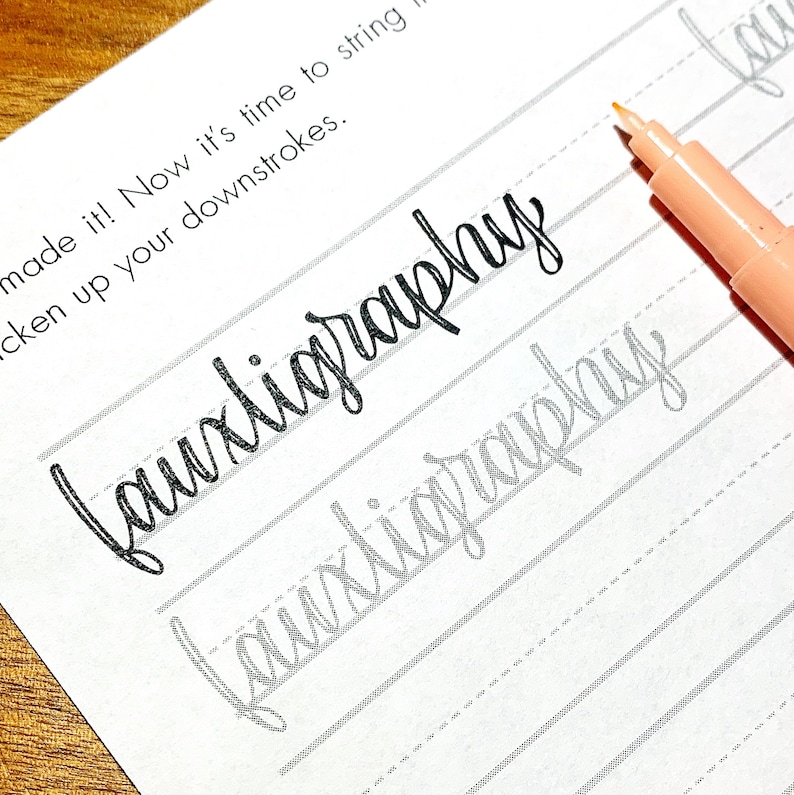 made it! Now it's time to string
icken up your downstrokes.
fau
fauxligraphy
fauxligraphy